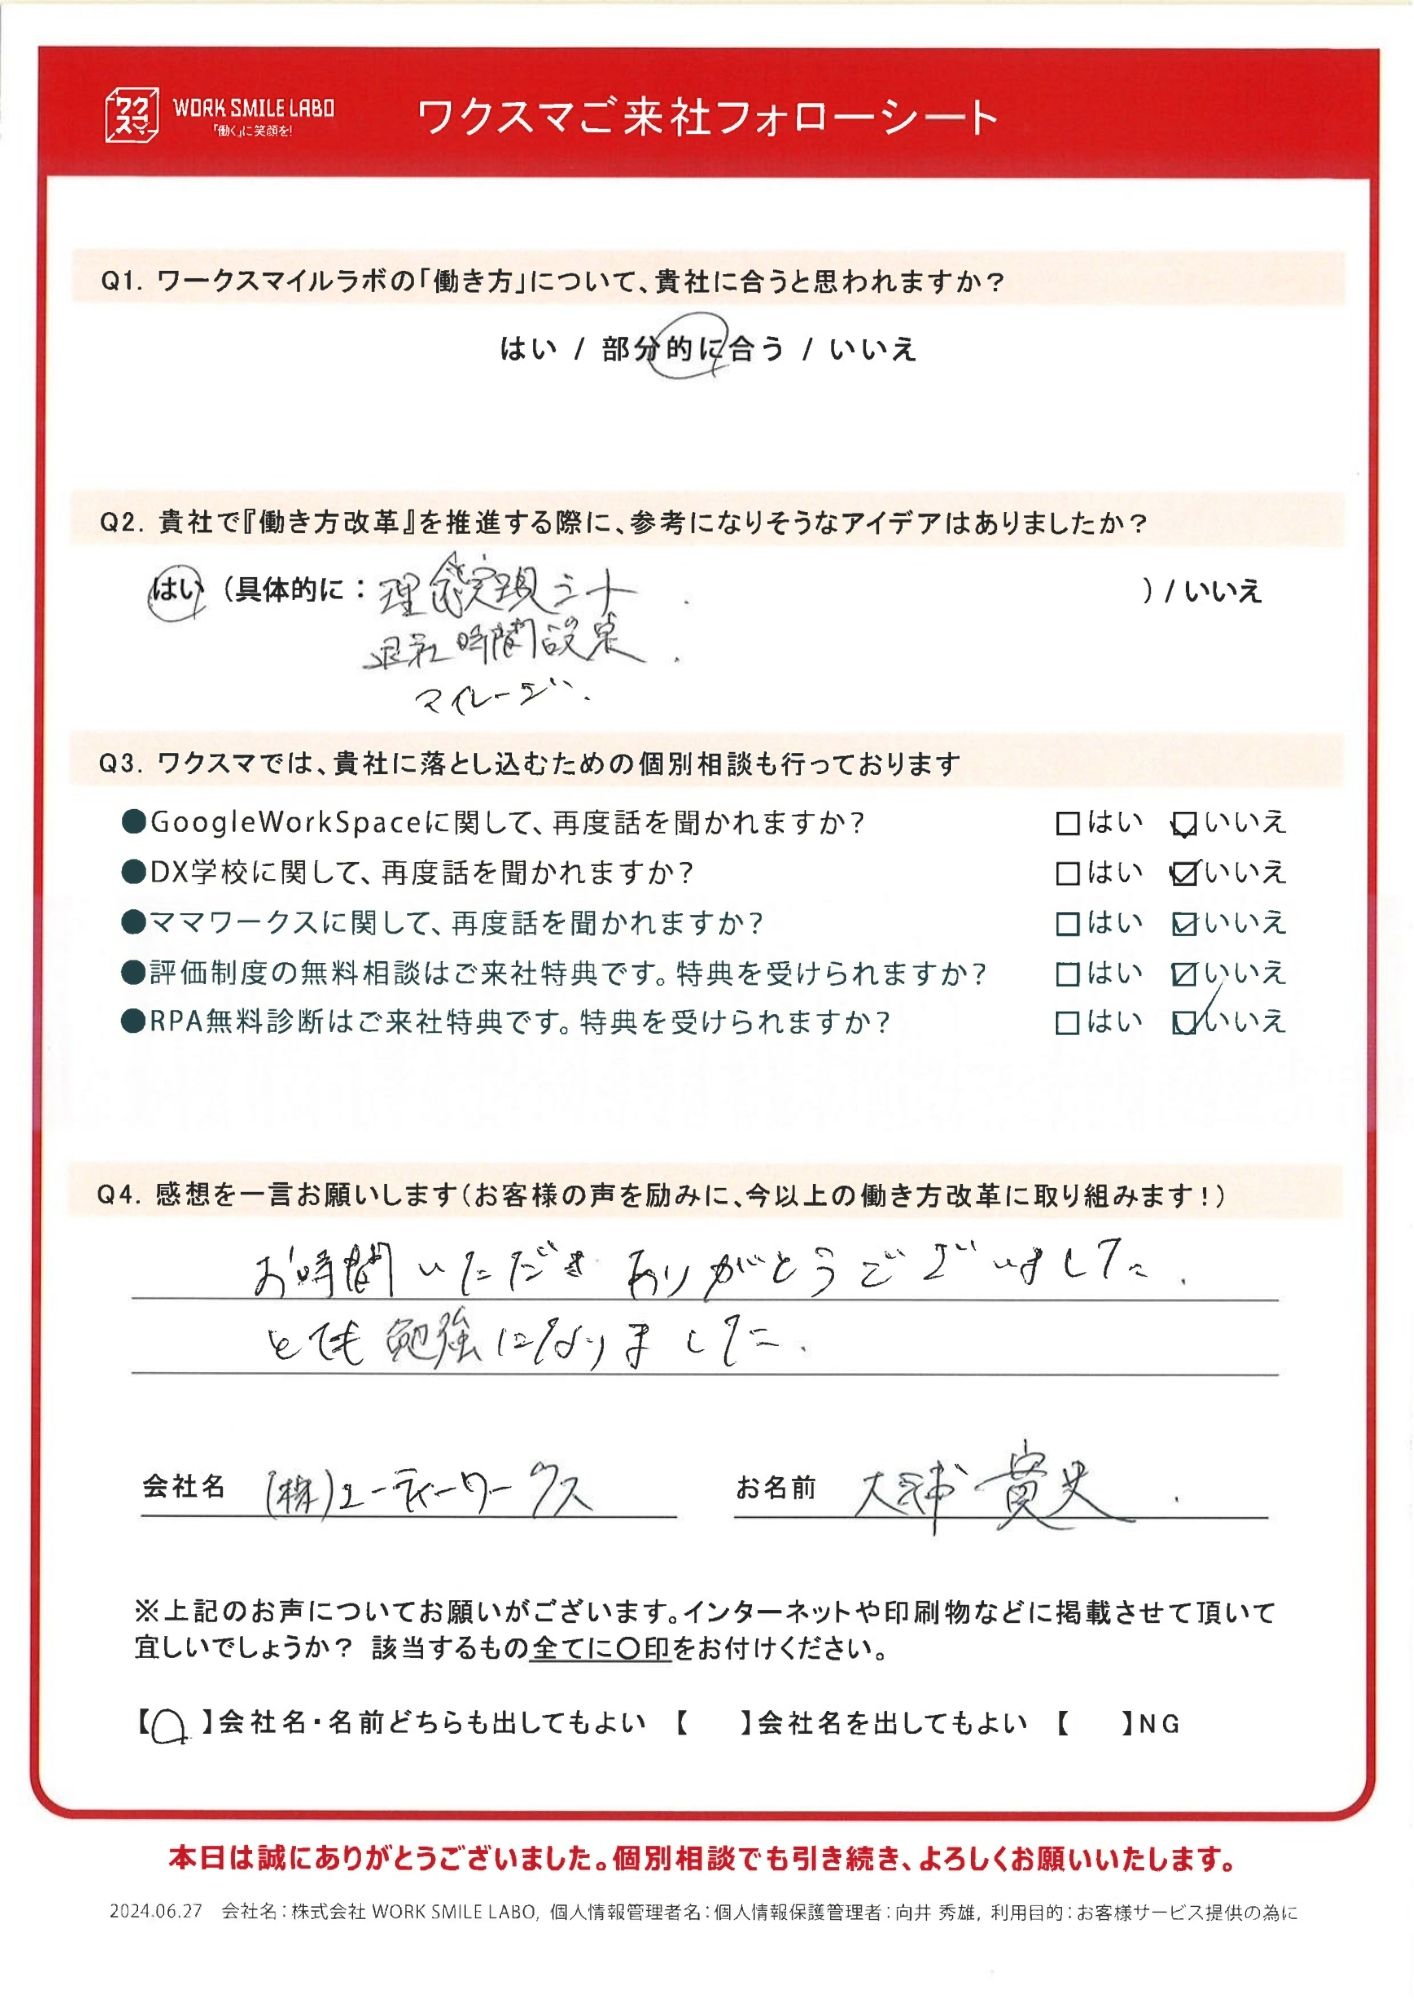 ワクスマ WORK SMILE LABO
「働く」に笑顔を!
ワクスマご来社フォローシート
Q1. ワークスマイルラボの「働き方」について、貴社に合うと思われますか？
はい / 部分的に合う / いいえ
Q2. 貴社で『働き方改革』を推進する際に、参考になりそうなアイデアはありましたか？
はい （具体的に： 理念実現シート ）/ いいえ
退社時間設定
マイレージ.
Q3. ワクスマでは、貴社に落とし込むための個別相談も行っております
●GoogleWorkSpaceに関して、再度話を聞かれますか？ □はい ☑いいえ
●DX学校に関して、再度話を聞かれますか？ □はい ☑いいえ
●ママワークスに関して、再度話を聞かれますか？ □はい ☑いいえ
●評価制度の無料相談はご来社特典です。特典を受けられますか？ □はい ☑いいえ
●RPA無料診断はご来社特典です。特典を受けられますか？ □はい ☑いいえ
Q4. 感想を一言お願いします（お客様の声を励みに、今以上の働き方改革に取り組みます！）
お時間いただき ありがとうございました.
とても勉強になりました.
会社名 (株)ユーティーワークス お名前 大 貴史
※上記のお声についてお願いがございます。インターネットや印刷物などに掲載させて頂いて
宜しいでしょうか？ 該当するもの全てに〇印をお付けください。
【〇】会社名・名前どちらも出してもよい 【 】会社名を出してもよい 【 】NG
本日は誠にありがとうございました。個別相談でも引き続き、よろしくお願いいたします。
2024.06.27 会社名：株式会社 WORK SMILE LABO, 個人情報管理者名：個人情報保護管理者：向井 秀雄, 利用目的：お客様サービス提供の為に